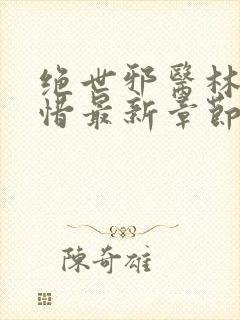 绝世邪醫林
惜最新章節
陳奇雄